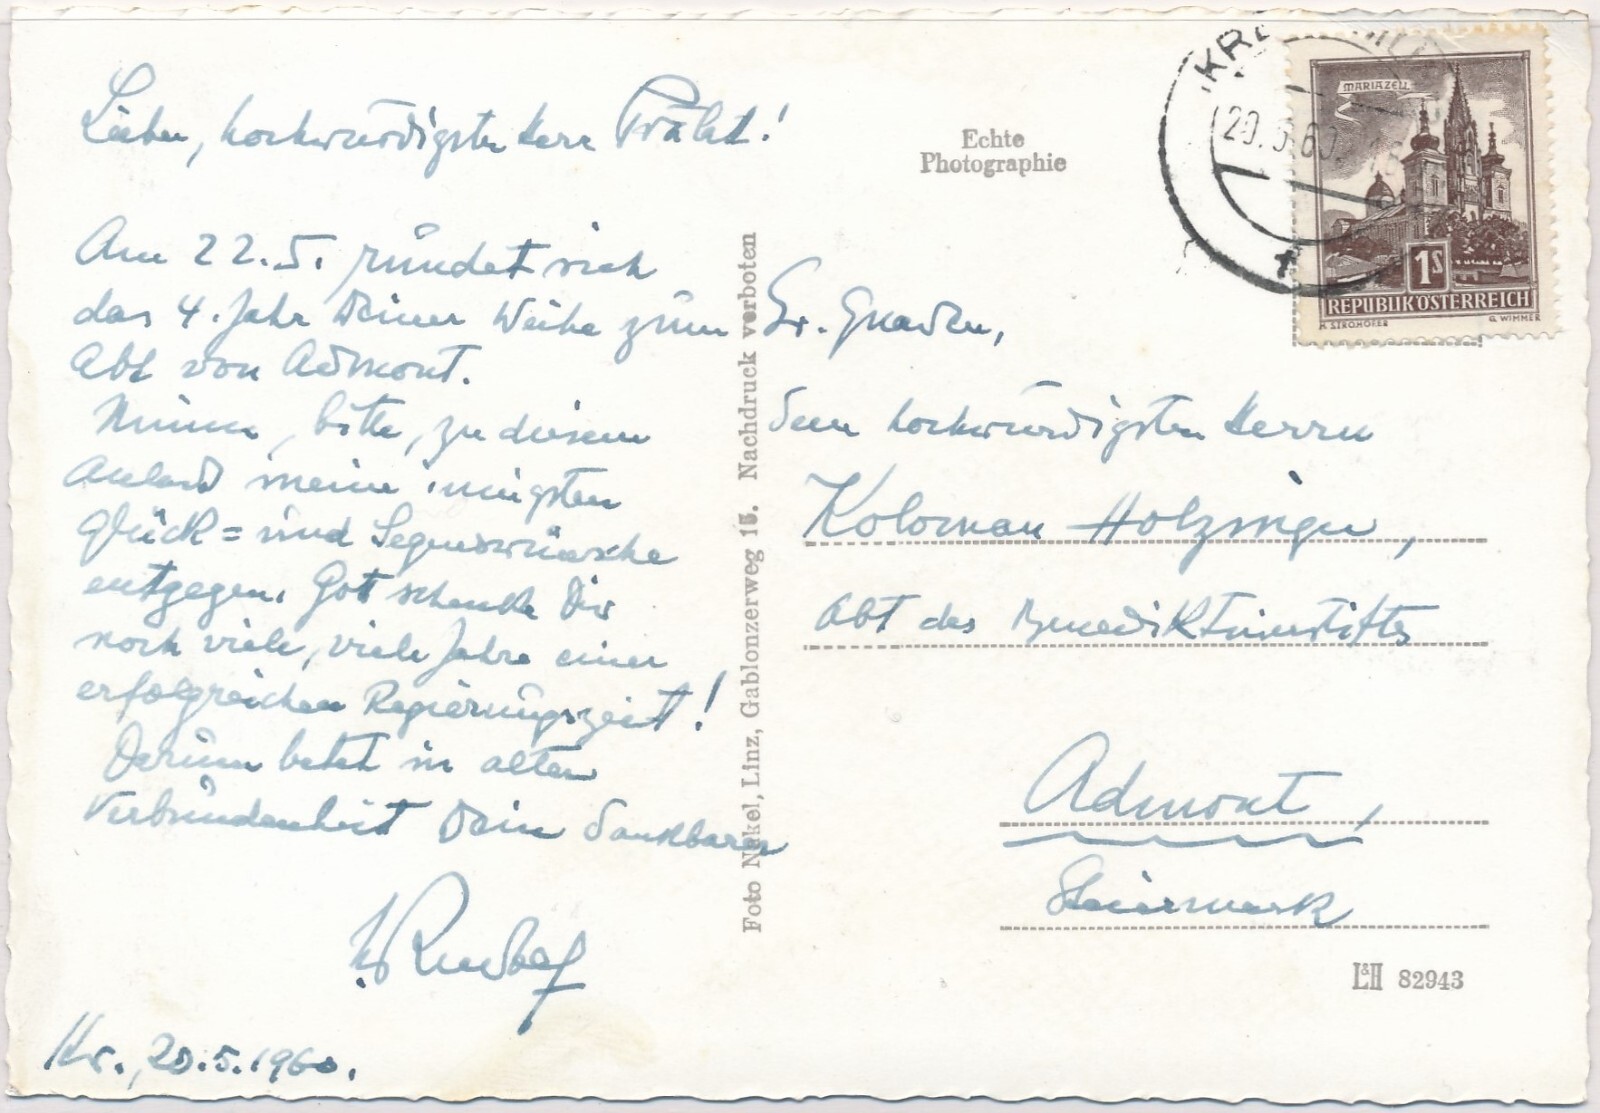 Lieber, hochwürdigster Herr Prälat!
Am 22.5. rundet sich
das 4. Jahr Deiner Weihe zum
Abt von Admont.
Nimm, bitte, zu diesem
Anlaß meine innigsten
Glück= und Segenswünsche
entgegen. Gott schenke Dir
noch viele, viele Jahre einer
erfolgreichen Regierungszeit!
Darum betet in alter
Verbundenheit Dein dankbarer
Kr., 20.5.1960.
Echte
Photographie
Foto Nekel, Linz, Gablonzerweg 15. Nachdruck verboten
20.5.60
MARIAZELL
1S
REPUBLIK ÖSTERREICH
H. STROHOFER G. WIMMER
Sr. Gnaden,
dem hochwürdigsten Herrn
Koloman Holzinger,
Abt des Benediktinerstiftes
Admont,
Steiermark
L&H 82943